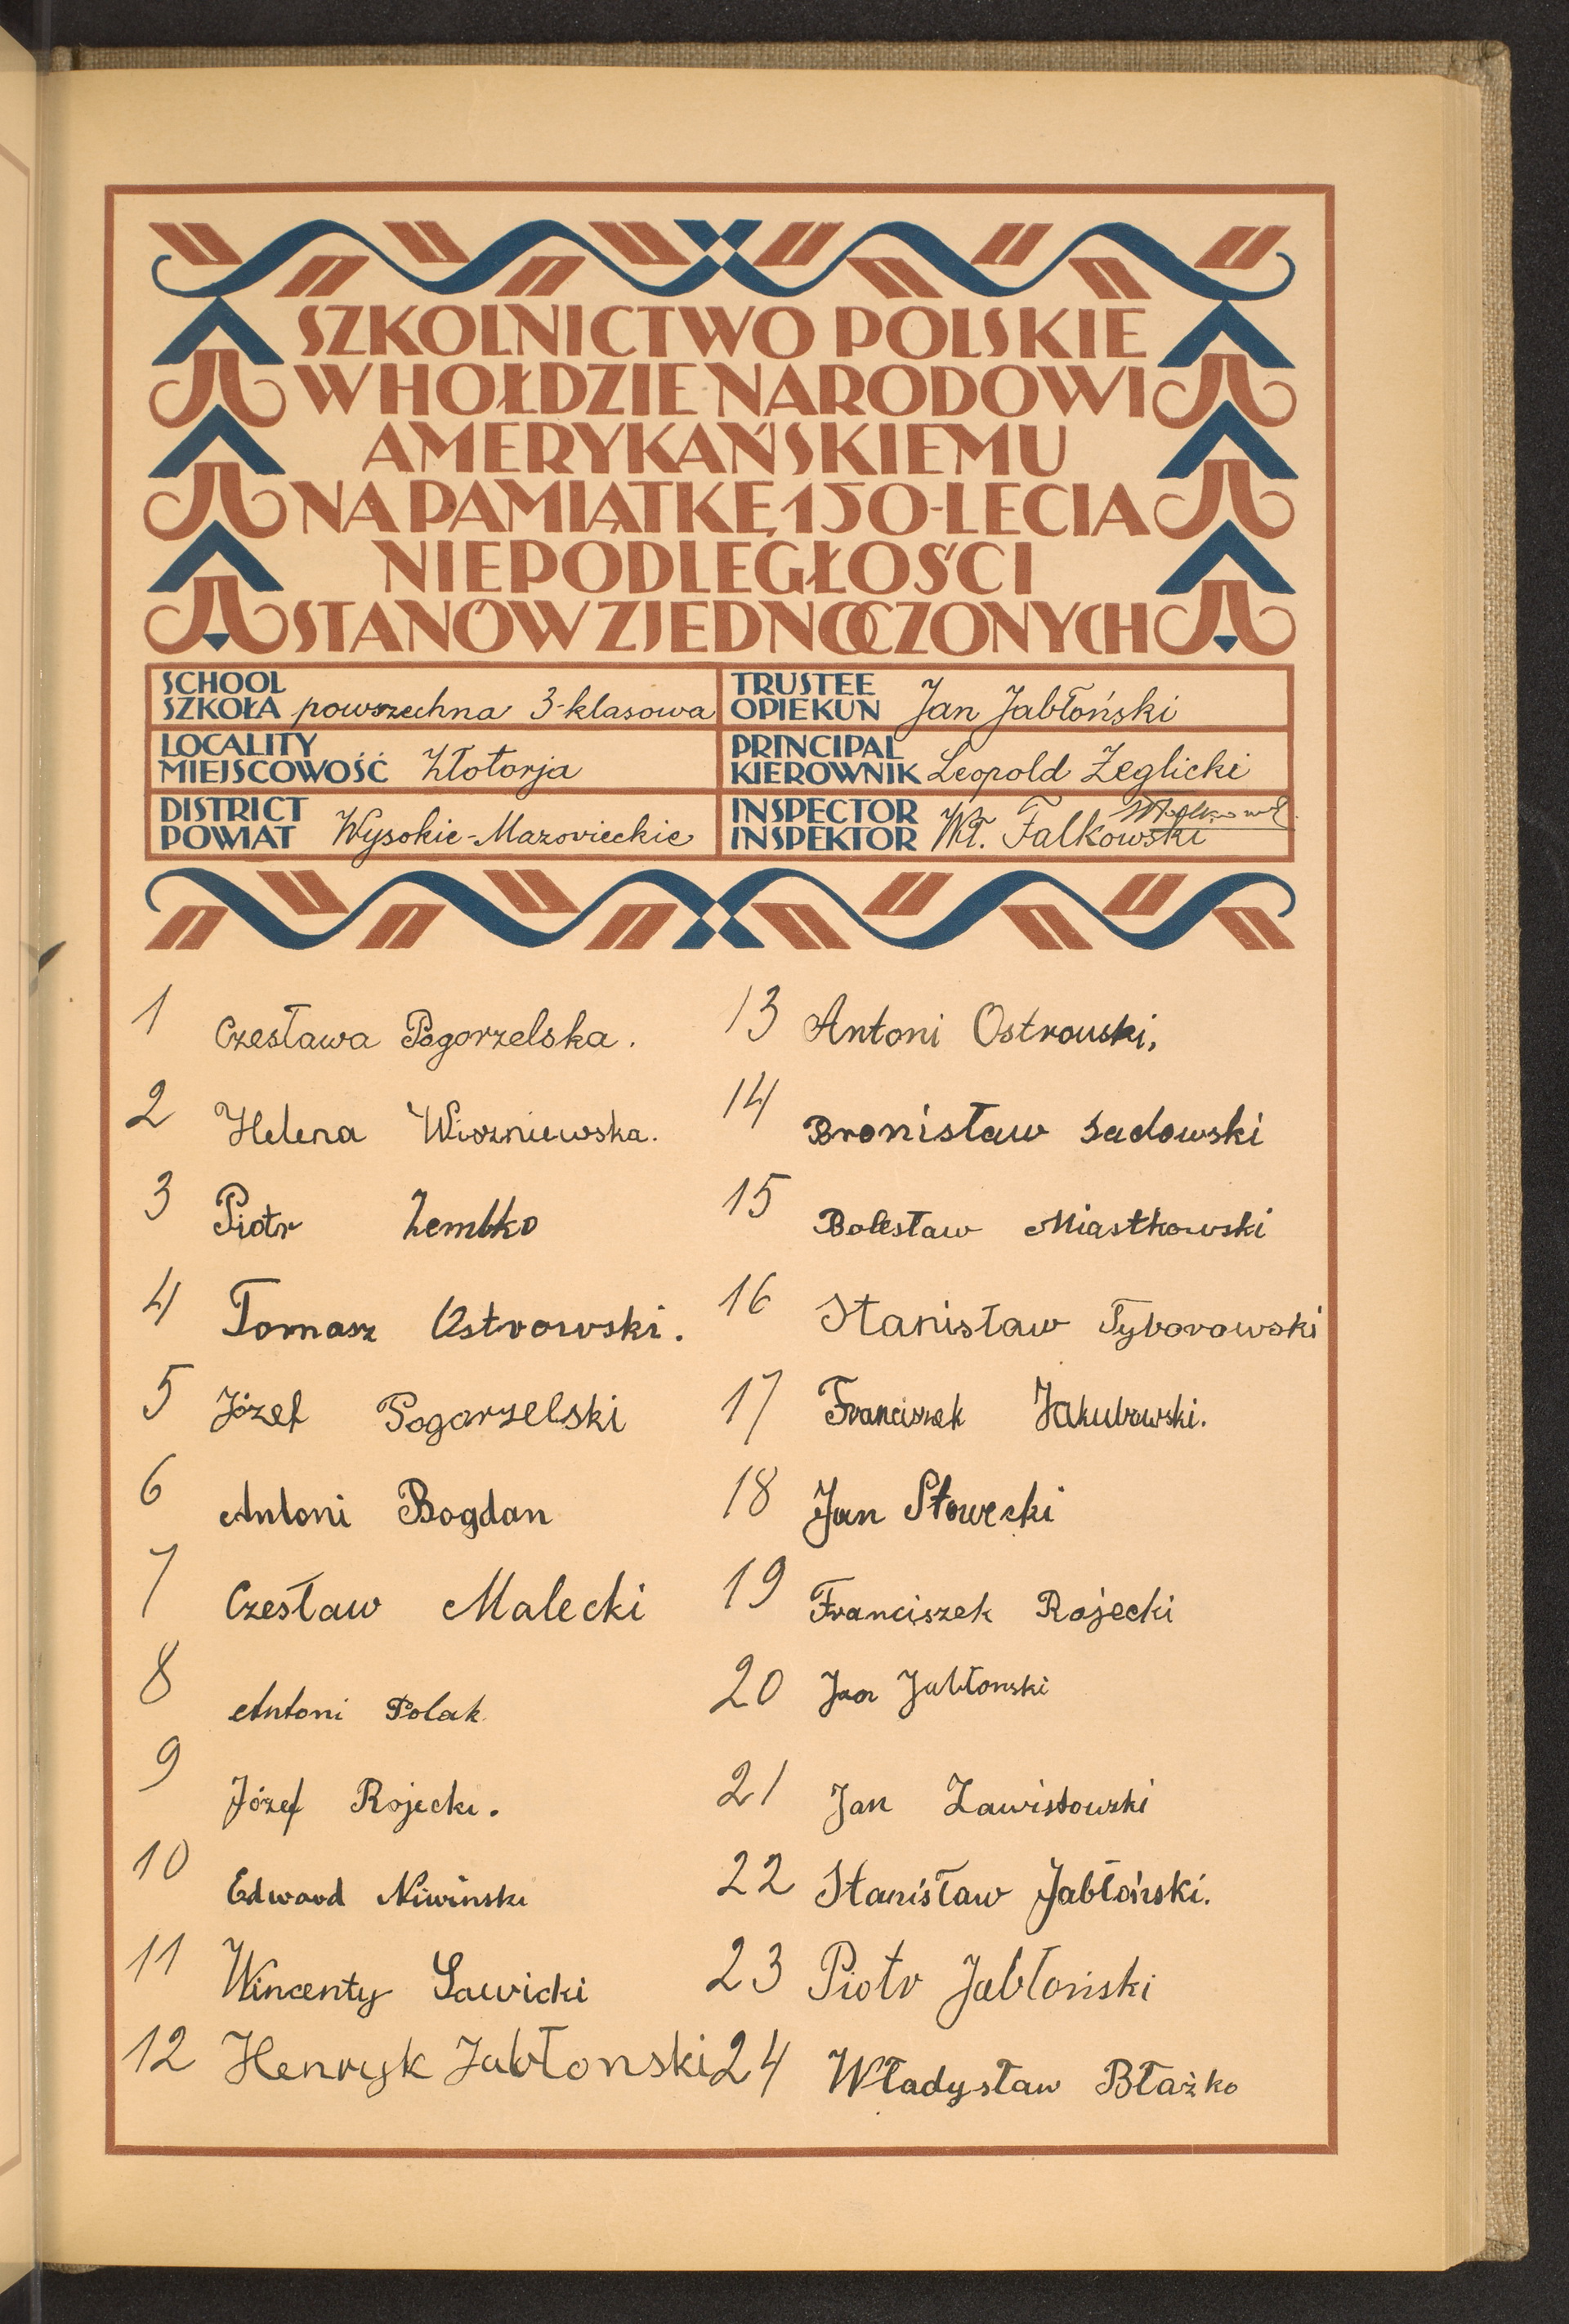 SZKOLNICTWO POLSKIE
W HOŁDZIE NARODOWI
AMERYKAŃSKIEMU
NA PAMIĄTKĘ 150-LECIA
NIEPODLEGŁOŚCI
STANÓW ZJEDNOCZONYCH
SCHOOL
SZKOŁA powszechna 3-klasowa
TRUSTEE
OPIEKUN Jan Jabłoński
LOCALITY
MIEJSCOWOŚĆ Złotorja
PRINCIPAL
KIEROWNIK Leopold Żeglicki
DISTRICT
POWIAT Wysokie-Mazovieckie
INSPECTOR
INSPEKTOR Wł. Falkowski
1 Czesława Pogorzelska.
2 Helena Wiszniewska.
3 Piotr Zembko
4 Tomasz Ostrowski.
5 Józef Pogorzelski
6 Antoni Bogdan
7 Czesław Malecki
8 Antoni Polak
9 Józef Rojecki.
10 Edward Niwiński
11 Wincenty Sawicki
12 Henryk Jabłonski
13 Antoni Ostrouski,
14 Bronisław Sadowski
15 Bolesław Miastkowski
16 Stanisław Tyborowski
17 Franciszek Jakubowski.
18 Jan Słowecki
19 Franciszek Rojecki
20 Jan Jabłonski
21 Jan Zawistowski
22 Stanisław Jabłoński.
23 Piotr Jabłoński
24 Władysław Błażko